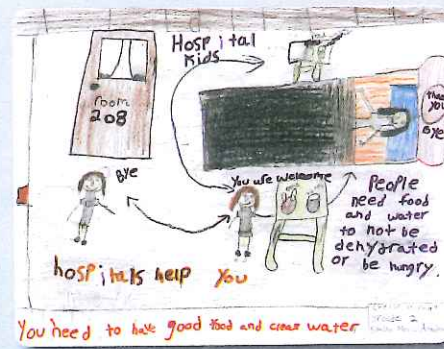 Hospital
Kids
room
208
Thank
you
Bye
Bye
You are welcome
People
need food
and water
to not be
dehydrated
or be hungry.
hospitals help you
Grade 2
You need to have good food and clean water